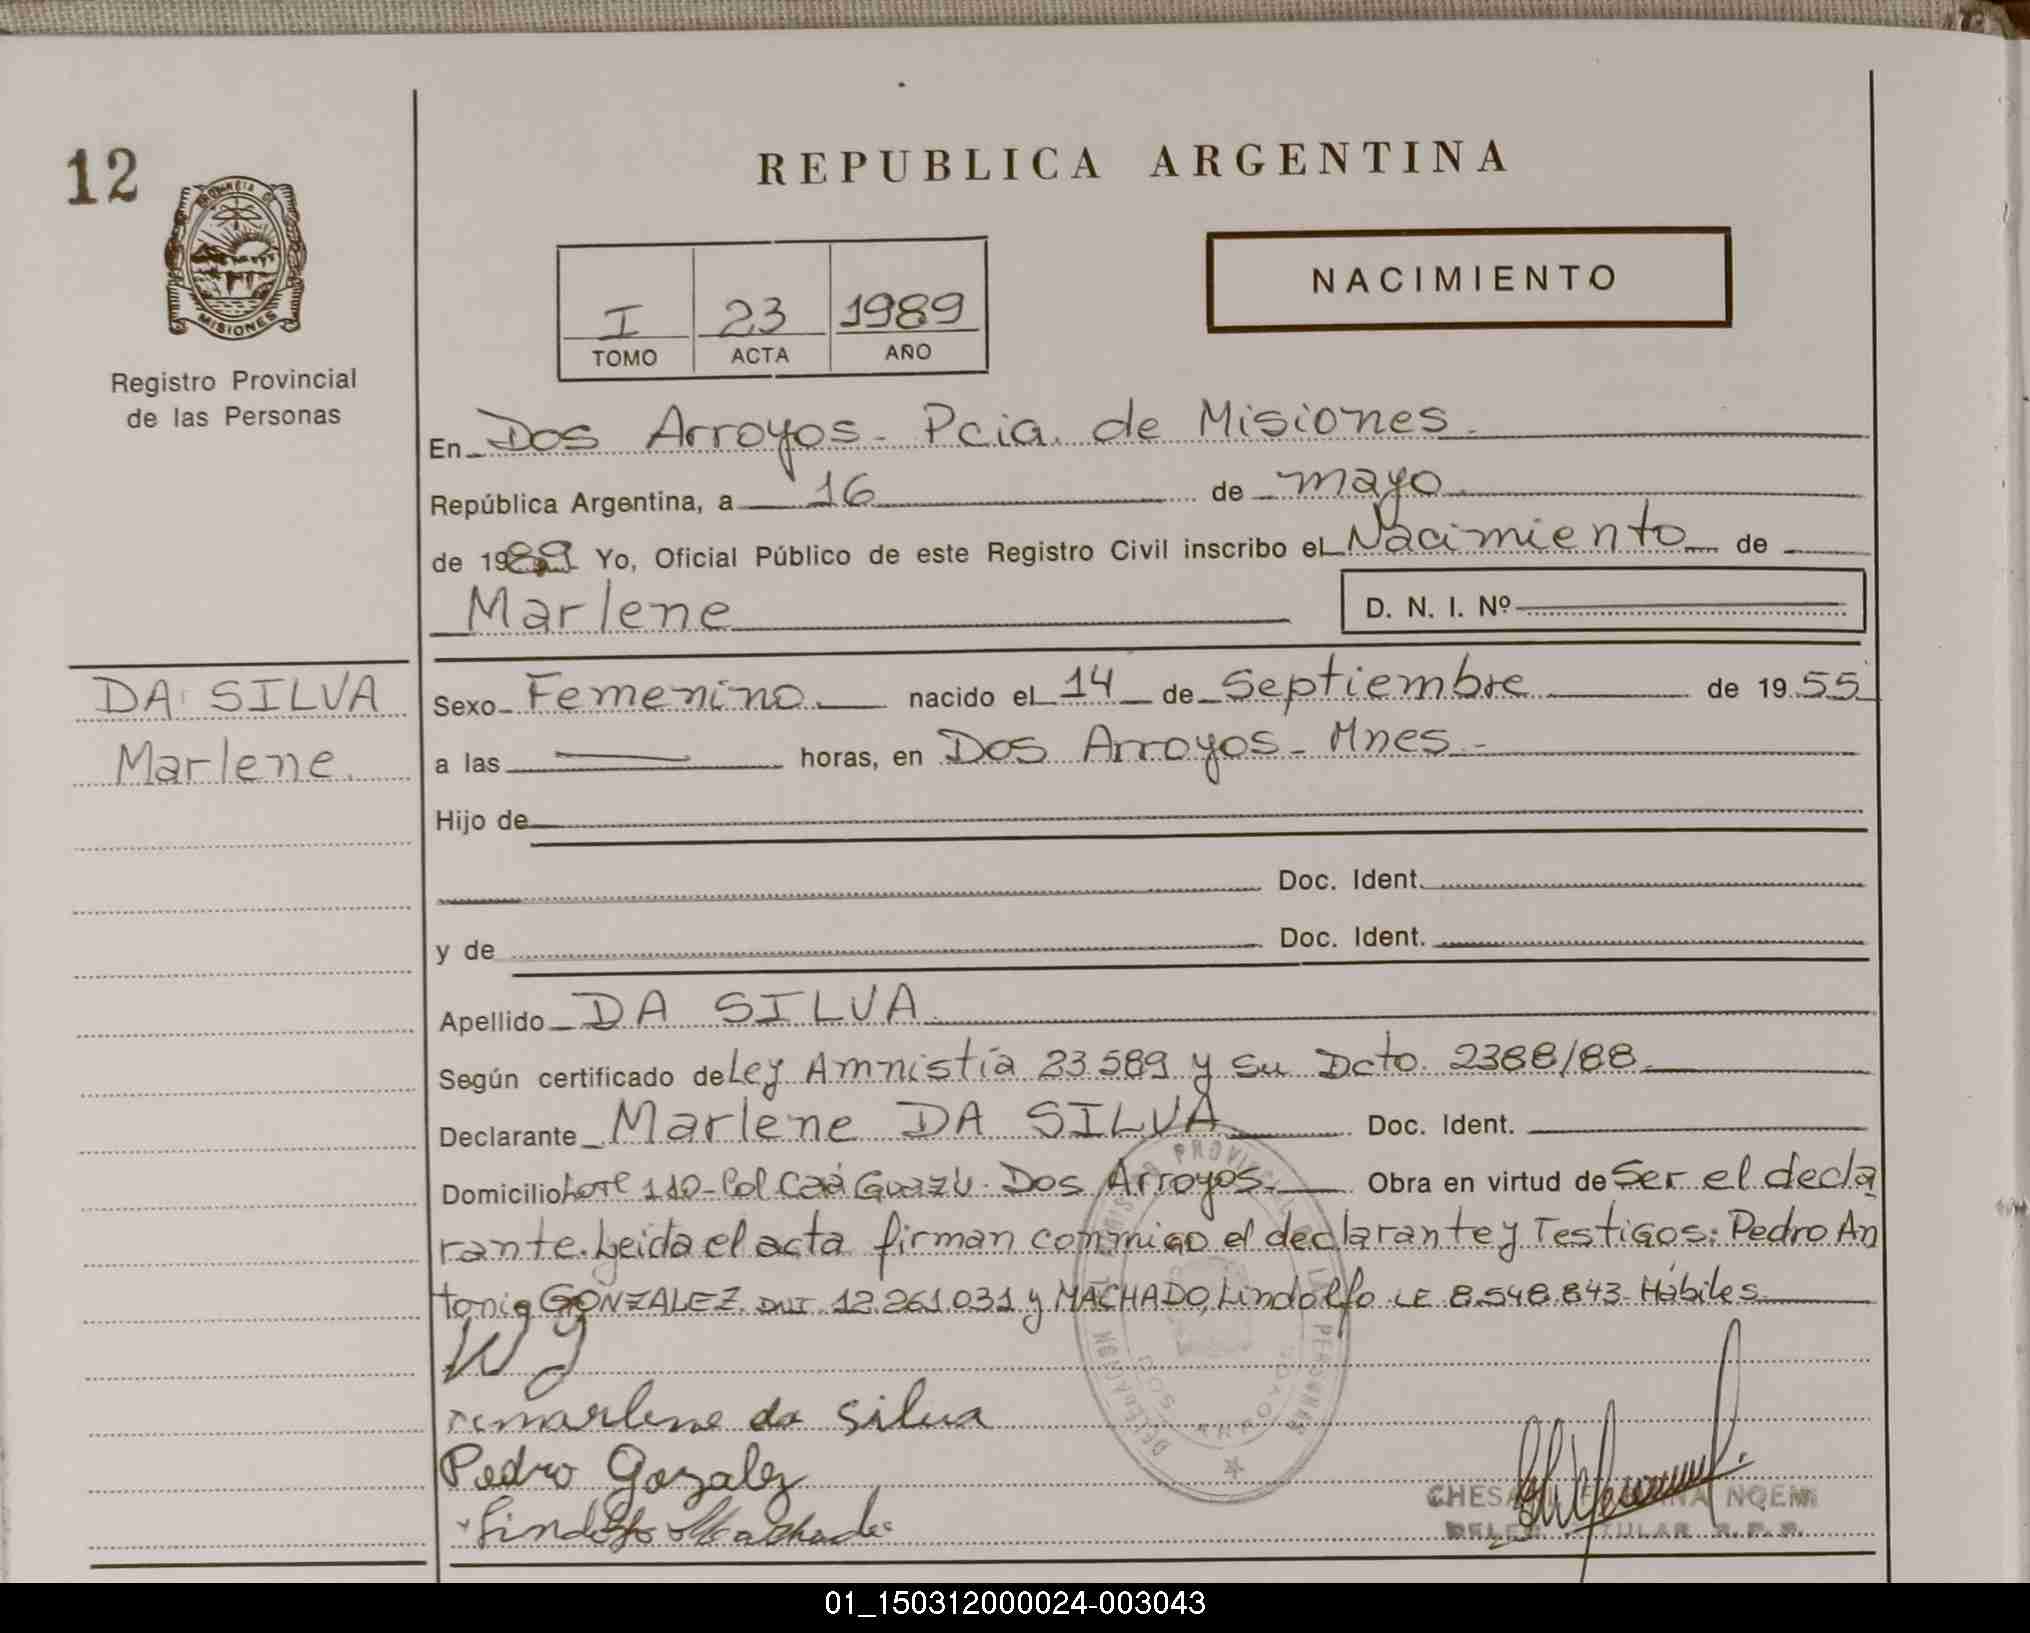 12
PROVINCIA DE
MISIONES
Registro Provincial
de las Personas
REPUBLICA ARGENTINA
I 23 1989
TOMO ACTA AÑO
NACIMIENTO
En Dos Arroyos - Pcia. de Misiones.
República Argentina, a 16 de mayo
de 1989 Yo, Oficial Público de este Registro Civil inscribo el Nacimiento de
Marlene D. N. I. Nº
DA SILVA
Marlene.
Sexo Femenino nacido el 14 de Septiembre de 1955
a las horas, en Dos Arroyos - Mnes -
Hijo de
Doc. Ident.
y de Doc. Ident.
Apellido DA SILVA
Según certificado de Ley Amnistía 23.589 y su Dcto. 2388/88
Declarante Marlene DA SILVA Doc. Ident.
Domicilio Lote 110 - Col Caá Guazú - Dos Arroyos. Obra en virtud de Ser el decla
rante. Leida el acta firman conmigo el declarante y Testigos: Pedro An
tonio GONZALEZ DNI 12.261.031 y MACHADO, Lindolfo LE 8.548.843 Hábiles
marlene da silva
Pedro Gozalez
Lindolfo Machado
NOEMI
TITULAR R.P.P.
01_150312000024-003043